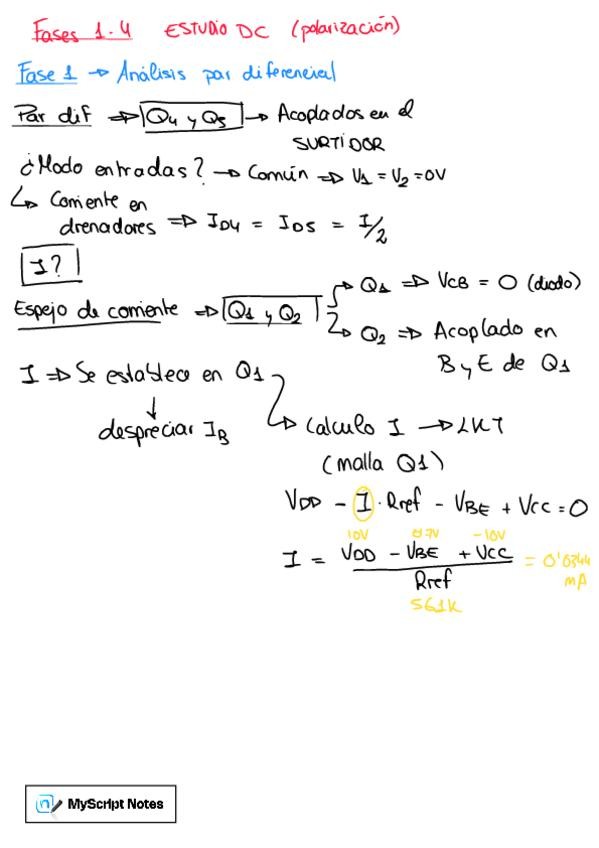 Fases 1-4 ESTUDIO DC (polarización)
Fase 1 → Análisis par diferencial
Par dif ⇒ Q4 y Q5 → Acoplados en el
SURTIDOR
¿Modo entradas? → Común ⇒ V1 = V2 = 0V
↳ Corriente en
drenadores ⇒ ID4 = ID5 = I/2
I?
Espejo de corriente ⇒ Q1 y Q2
→ Q1 ⇒ VCB = 0 (diodo)
→ Q2 ⇒ Acoplado en
B y E de Q1
I ⇒ Se establece en Q1
↓
despreciar IB
↳ Calculo I → LKT
(malla Q1)
VDD - I · Rref - VBE + VCC = 0
10V 0.7V -10V
I = VDD - VBE + VCC / Rref = 0'0344
mA
561K
MyScript Notes